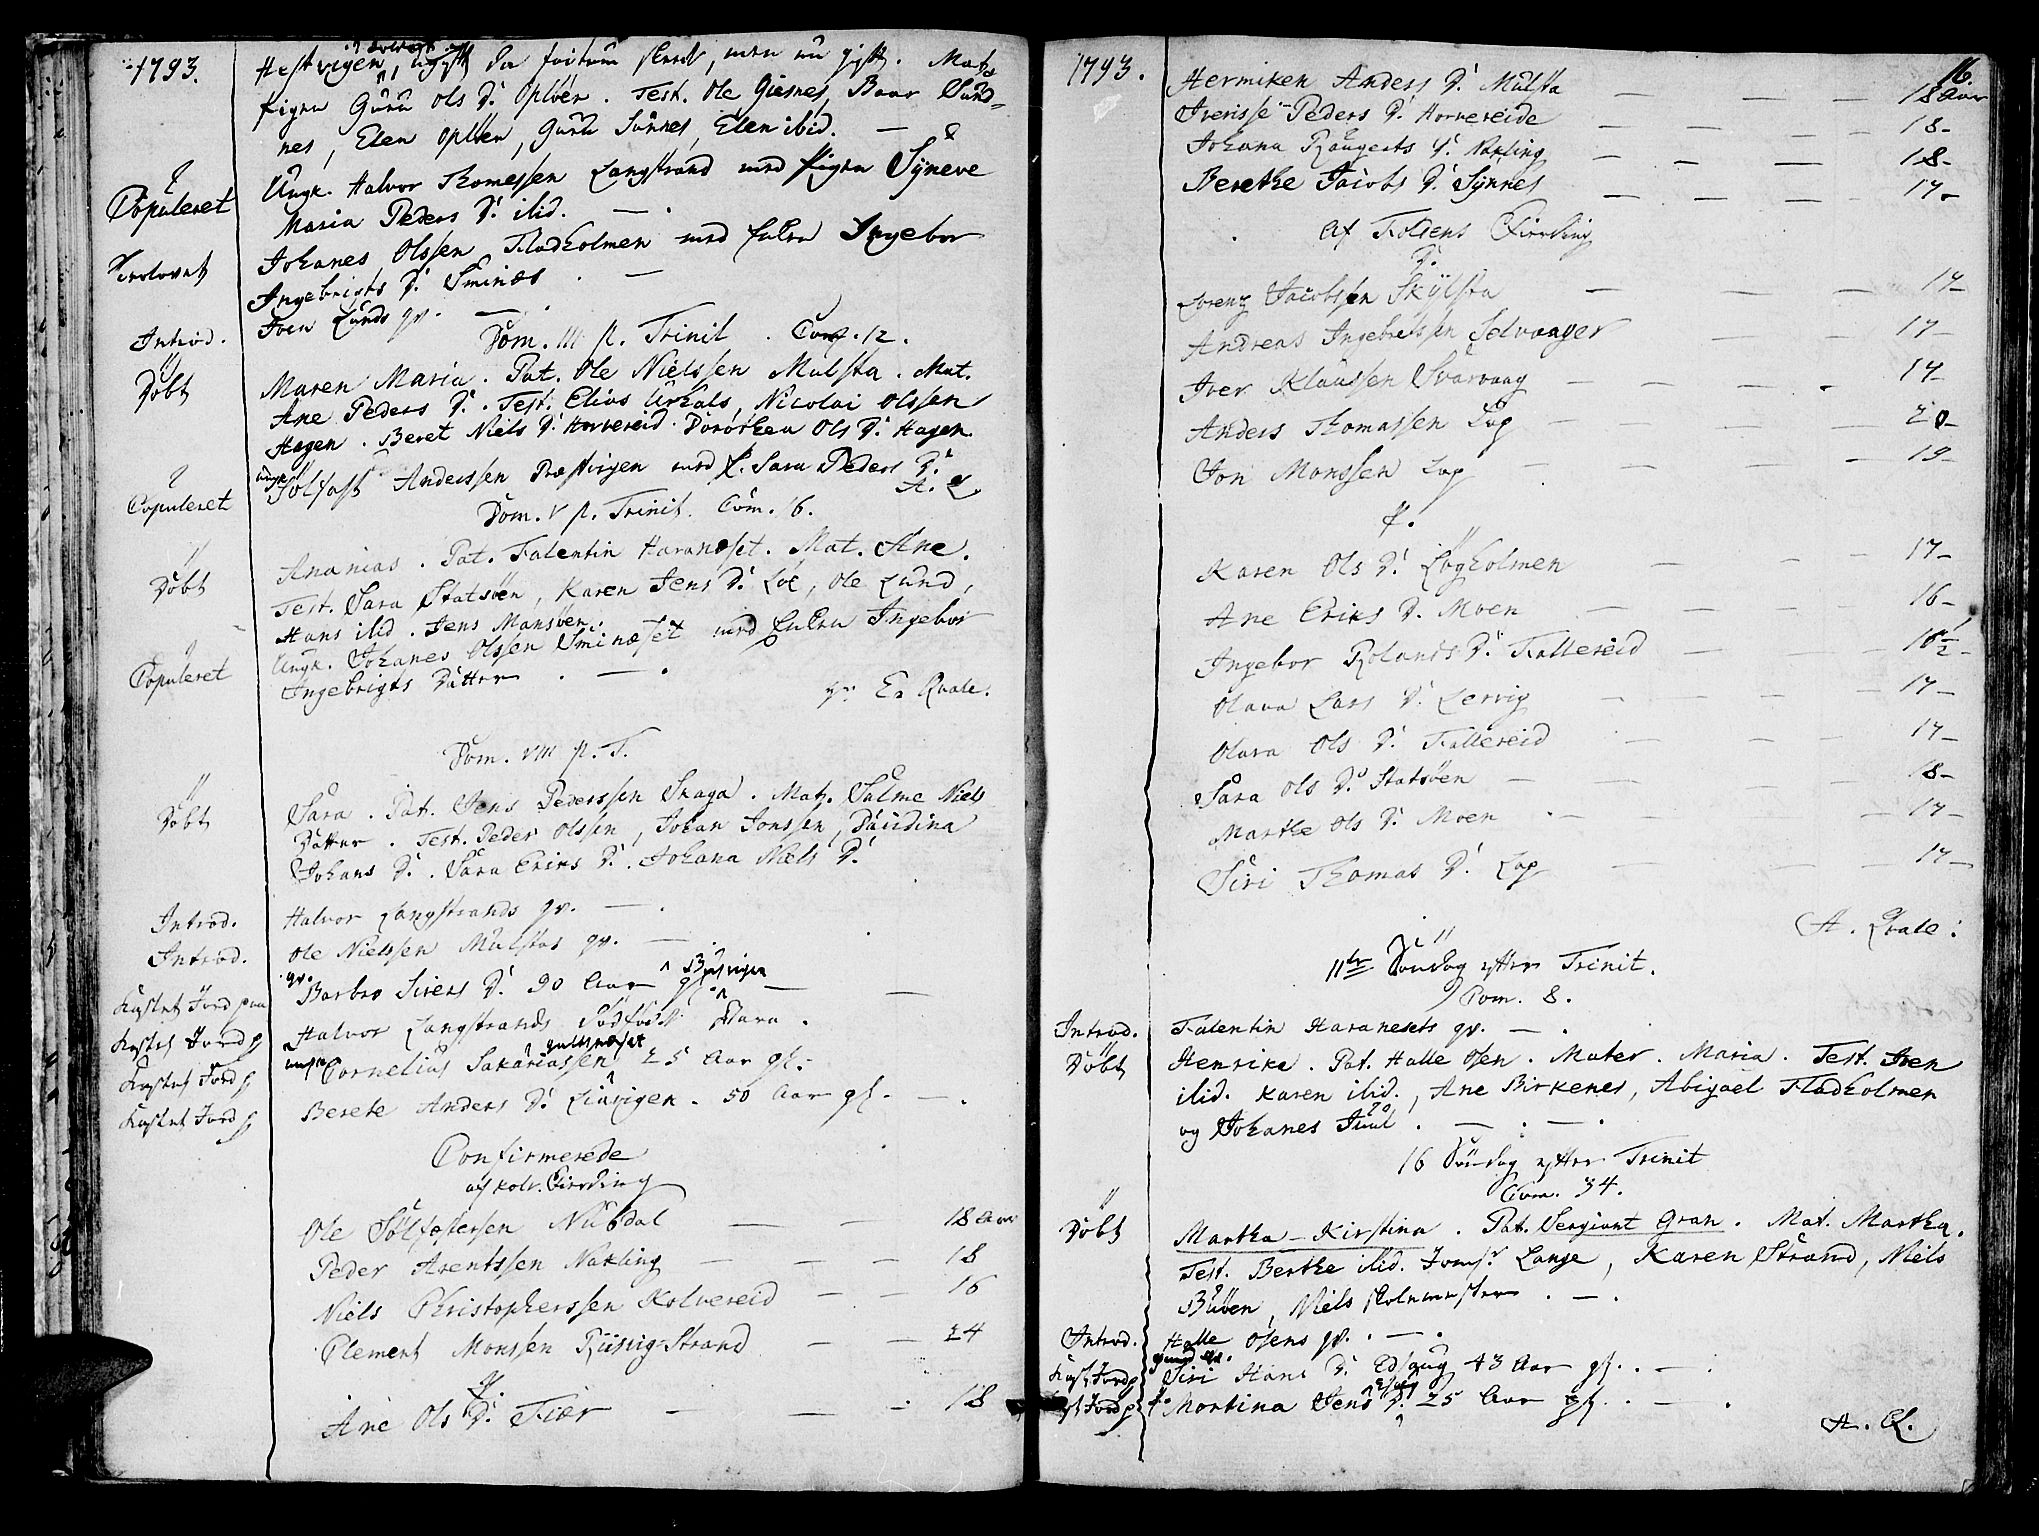 1793.
Hestvigen, ugift da hun skeede, men nu gift. Mat.
Pigen Guru Ols D. Opløen. Test. Ole Giesnes, Baar Sund-
nes, Elen Opløen, Guru Sunnes, Elen ibid. —
Copuleret Ungk. Halvor Thomessen Langstrand med Pigen Syneve
Maria Peders D. ibid. — .
Trolovet Johanes Olssen Fladholmen med Enken Ingebor
Ingebrigts D. Sminæs . —
Introd. Iven Lunds qv. — .
Dom. III p. Trinit . Com. 12.
Döbt Maren Maria . Pat. Ole Nielssen Mulsta . Mat.
Ane Peders D. . Test. Elias Urkals, Nicolai Olssen
Hagen . Beret Niels D. Horvereid . Dorothea Ols D. Hagen.
Copuleret Ungk. Solfast Anderssen Præstvigen med E. Sara Peders D.
A. Q.
Dom. V p. Trinit. Com. 6.
Döbt Ananias . Pat. Falentin Haranæset. Mat. Ane.
Test. Sara Statsöen, Karen Jens D. Löe, Ole Lund,
Hans ibid . Jens Mansöen.
Copuleret Ungk. Johanes Olssen Sminæset med Enken Ingebor
Ingebrigts Datter . — .
A. Qvale.
Dom. VIII p. T.
Döbt Sara . Pat. Jens Pederssen Skaga . Mat. Salme Niels
Datter . Test. Peder Olssen, Johan Jonssen, Daudina
Johans D. . Sara Eriks D. . Johana Niels D.
Introd. Halvor Langstrands qv. — .
Introd. Ole Nielssen Mulstas qv. — .
Kastet Jord paa qv. Barbro Sivers D. 90 Aar gl. —
Kastet Jord p Halvor Langstrands Dödfödt Barn .
Kastet Jord p ungk. Cornelius Sakariassen 25 Aar gl.
Kastet Jord p Berete Anders D. . 50 Aar gl. — .
Confirmerede
af Kolv. Fierding
Ole Solfastersen Nubdal — — 18 Aar
Peder Arentssen Nakling — — — 18
Niels Christopherssen Kolvereid — — 16
Clement Monssen Rusvig Strand — — 24
P.
Ane Ols D. Fiær — — 18
1793.
16.
Hermiken Anders D. Mulsta — — — 18 Aar
Iverisse Peders D. Horvereide — — — 18 -
Johana Rougerts D. Nakling — — — 18 -
Berethe Jacobs D. Synnes — — — 17 -
Af Folsens Fierding
D.
Lorenz Jacobssen Skylsta — — — 17 -
Andreas Ingebretssen Selvaager — — 17 -
Iver Klaussen Svarvaag — — — 17 -
Anders Thomassen Log — — — 20 -
Jon Monssen Log — — — 19 -
P.
Karen Ols D. Løgholmen — — — 17 -
Ane Eriks D. Moen — — — 16 -
Ingebor Rolands D. Fallereid — — — 16½ -
Olava Lars D. Lervig — — — 17 -
Olava Ols D. Fallereid — — — 17 -
Sara Ols D. Statsöen — — — 18 -
Marthe Ols D. Moen — — — 17 -
Siri Thomas D. Log — — — 17 -
A. Qvale.
11te Söndag efter Trinit.
Com. 8.
Introd. Falentin Haranesets qv. — .
Döbt Henrika. Pat. Halle Osen . Mater. Maria . Test. Iven
ibid. Karen ibid. , Ane Birkenes, Abigael Fladholmen
og Johanes Juul . — . —
16 Söndag efter Trinit
Com. 34.
Döbt Martha-Kirstina . Pat. Sergiant Gran . Mat. Martha.
Test. Berthe ibid. Jomfr. Lange, Karen Strand, Niels
Buöen, Niels Skolemester . — .
Introd. Halle Osens qv. . — .
Kast. Jord p Siri Hans D. 43 Aar gl. . — .
Kast. Jord p Mortina Jens D. 25 Aar gl. . — .
A. Q.